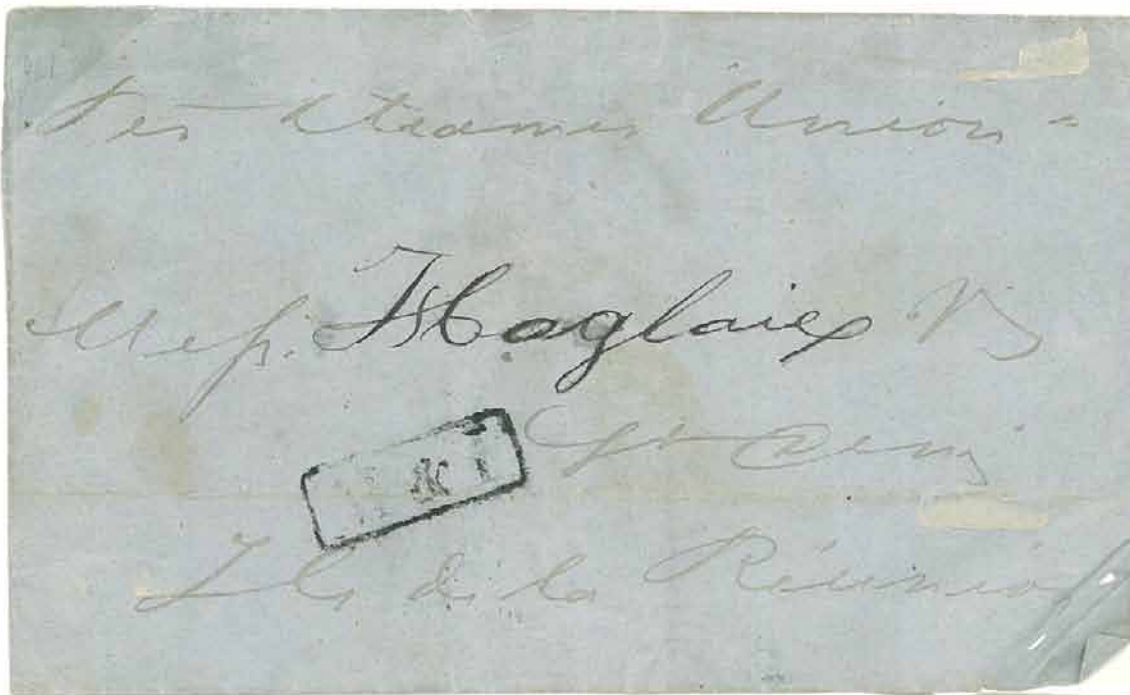 Per Steamer Union =
Mess. Hoglaiex
St Denis
Ile de la Réunion